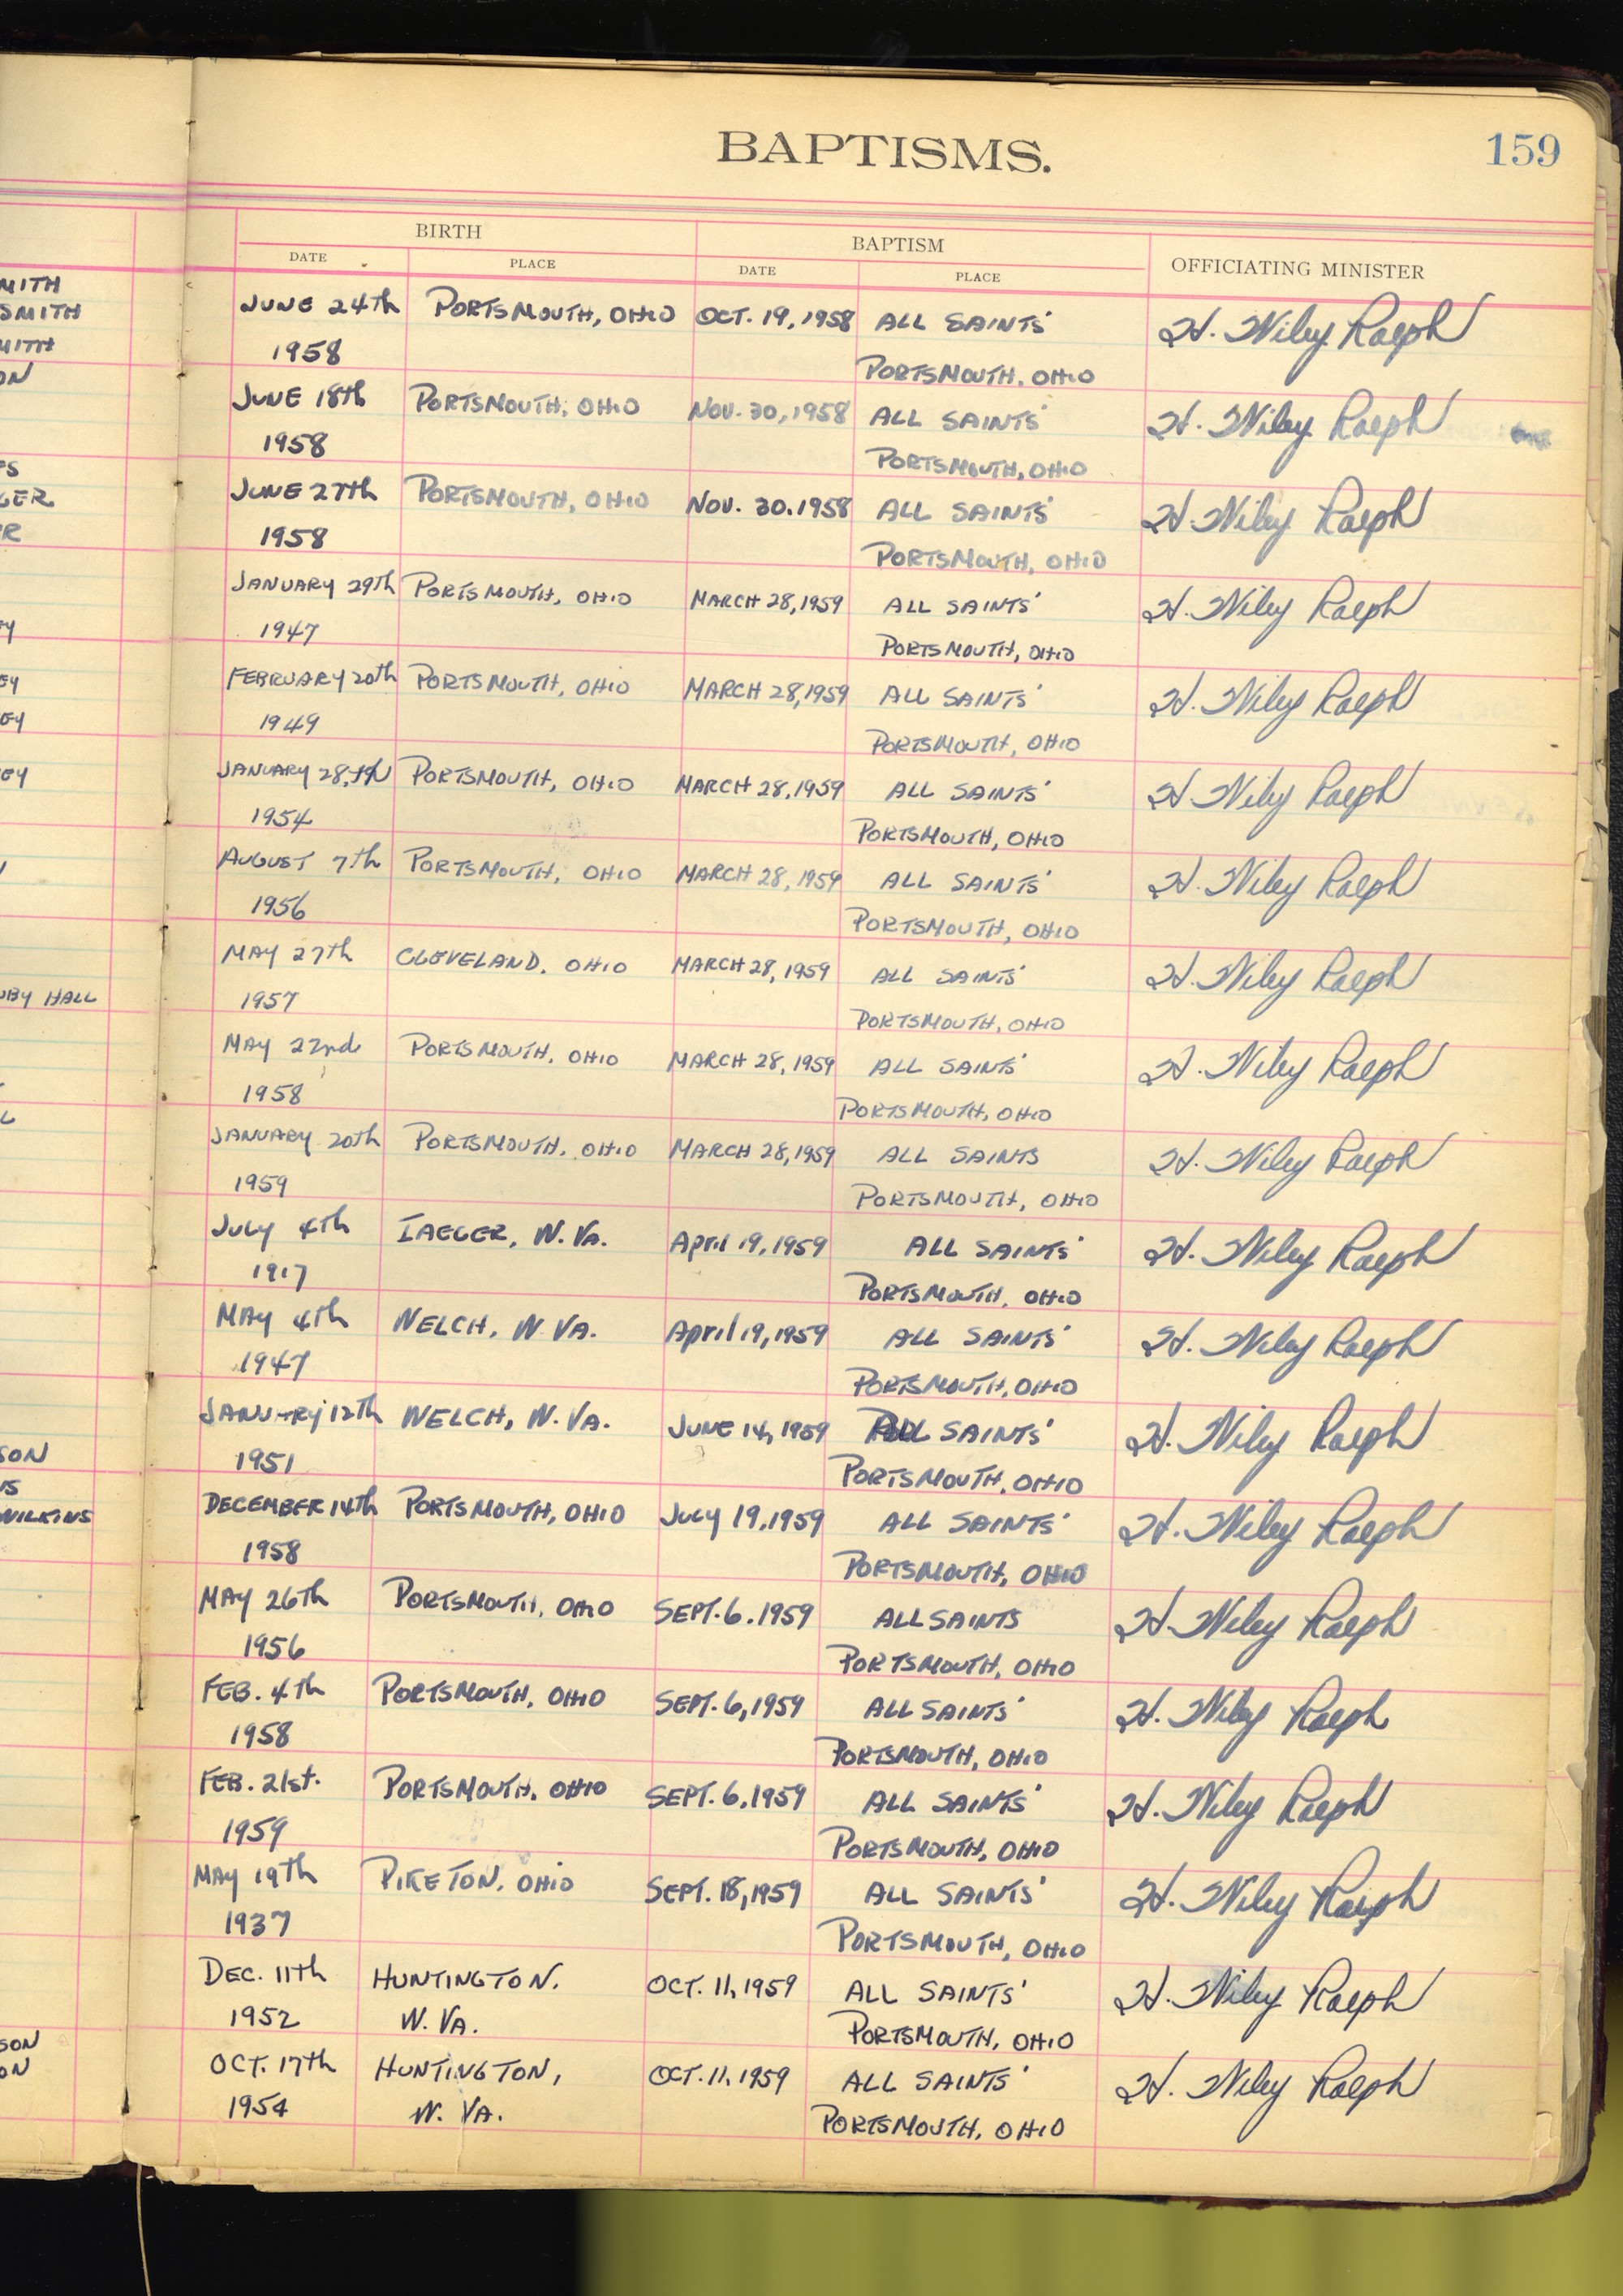 BAPTISMS.
159
BIRTH
BAPTISM
OFFICIATING MINISTER
DATE
PLACE
DATE
PLACE
JUNE 24th PORTSMOUTH, OHIO OCT. 19, 1958 ALL SAINTS' H. Wiley Ralph
1958 PORTSMOUTH, OHIO
JUNE 18th PORTSMOUTH, OHIO NOV. 30, 1958 ALL SAINTS' H. Wiley Ralph
1958 PORTSMOUTH, OHIO
JUNE 27th PORTSMOUTH, OHIO NOV. 30. 1958 ALL SAINTS' H. Wiley Ralph
1958 PORTSMOUTH, OHIO
JANUARY 29th PORTSMOUTH, OHIO MARCH 28, 1959 ALL SAINTS' H. Wiley Ralph
1947 PORTSMOUTH, OHIO
FEBRUARY 20th PORTSMOUTH, OHIO MARCH 28, 1959 ALL SAINTS' H. Wiley Ralph
1949 PORTSMOUTH, OHIO
JANUARY 28, th PORTSMOUTH, OHIO MARCH 28, 1959 ALL SAINTS' H. Wiley Ralph
1954 PORTSMOUTH, OHIO
AUGUST 7th PORTSMOUTH, OHIO MARCH 28, 1959 ALL SAINTS' H. Wiley Ralph
1956 PORTSMOUTH, OHIO
MAY 27th CLEVELAND, OHIO MARCH 28, 1959 ALL SAINTS' H. Wiley Ralph
1957 PORTSMOUTH, OHIO
MAY 22nd PORTSMOUTH, OHIO MARCH 28, 1959 ALL SAINTS' H. Wiley Ralph
1958 PORTSMOUTH, OHIO
JANUARY 20th PORTSMOUTH, OHIO MARCH 28, 1959 ALL SAINTS H. Wiley Ralph
1959 PORTSMOUTH, OHIO
JULY 4th IAEGER, W. VA. April 19, 1959 ALL SAINTS' H. Wiley Ralph
1917 PORTSMOUTH, OHIO
MAY 4th WELCH, W VA. April 19, 1959 ALL SAINTS' H. Wiley Ralph
1947 PORTSMOUTH, OHIO
JANUARY 12th WELCH, W. VA. JUNE 14, 1959 ALL SAINTS' H. Wiley Ralph
1951 PORTSMOUTH, OHIO
DECEMBER 14th PORTSMOUTH, OHIO JULY 19, 1959 ALL SAINTS' H. Wiley Ralph
1958 PORTSMOUTH, OHIO
MAY 26th PORTSMOUTH, OHIO SEPT. 6. 1959 ALL SAINTS H. Wiley Ralph
1956 PORTSMOUTH, OHIO
FEB. 4th PORTSMOUTH, OHIO SEPT. 6, 1959 ALL SAINTS' H. Wiley Ralph
1958 PORTSMOUTH, OHIO
FEB. 21st. PORTSMOUTH, OHIO SEPT. 6, 1959 ALL SAINTS' H. Wiley Ralph
1959 PORTSMOUTH, OHIO
MAY 19th PIKETON, OHIO SEPT. 18, 1959 ALL SAINTS' H. Wiley Ralph
1937 PORTSMOUTH, OHIO
DEC. 11th HUNTINGTON, OCT. 11, 1959 ALL SAINTS' H. Wiley Ralph
1952 W. VA. PORTSMOUTH, OHIO
OCT. 17th HUNTINGTON, OCT. 11, 1959 ALL SAINTS' H. Wiley Ralph
1954 W. VA. PORTSMOUTH, OHIO
MITH
SMITH
MITH
ON
GER
EY
EY
UBY HALL
SON
WILKINS
SON
ON